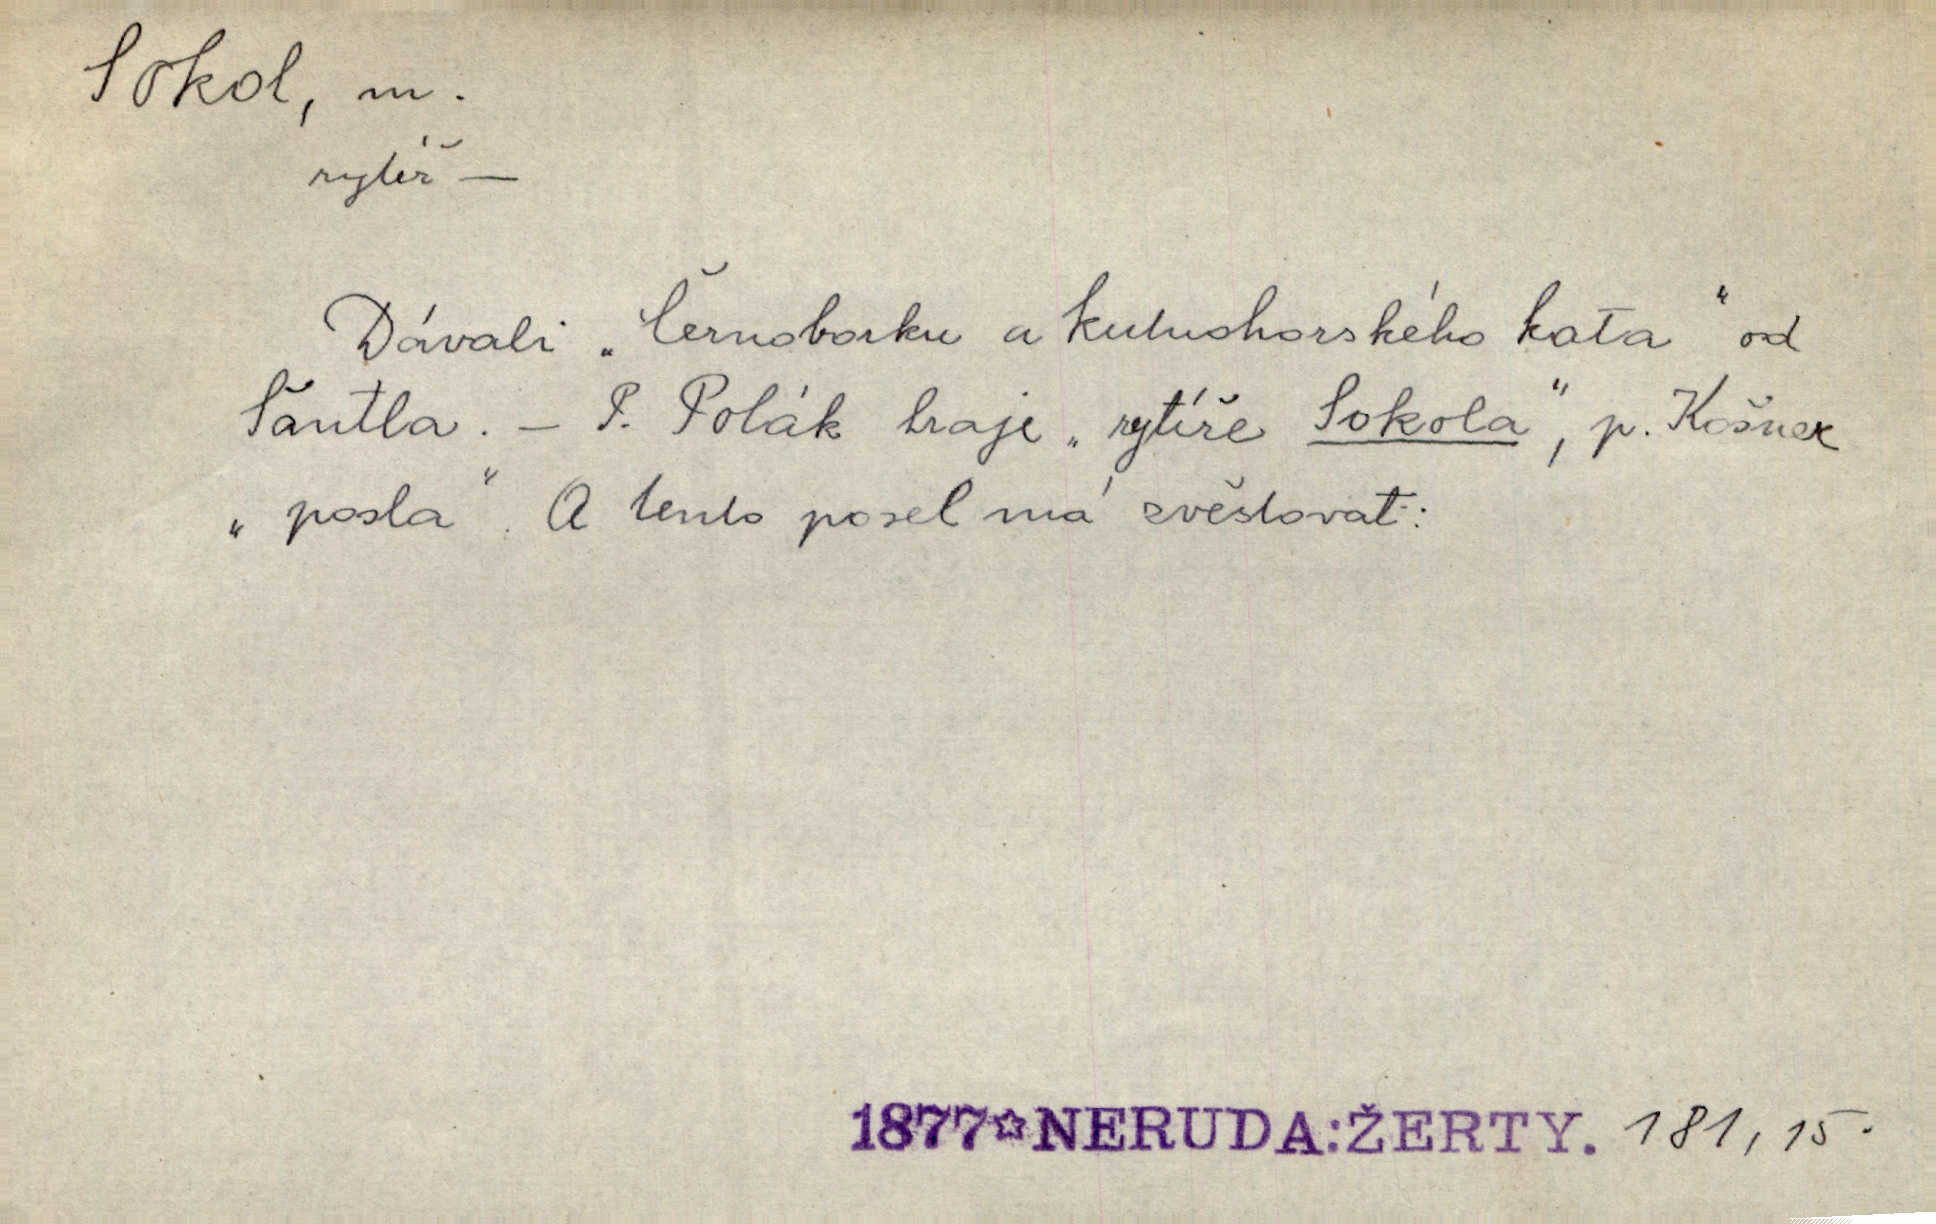 Sokol, m.
rytíř —
Dávali „Černoborku a kutnohorského kata" od
Šantla. — P. Polák hraje „rytíře Sokola", p. Košner
„posla". A tento posel má zvěstovat:
1877☆NERUDA:ŽERTY. 181, 15.